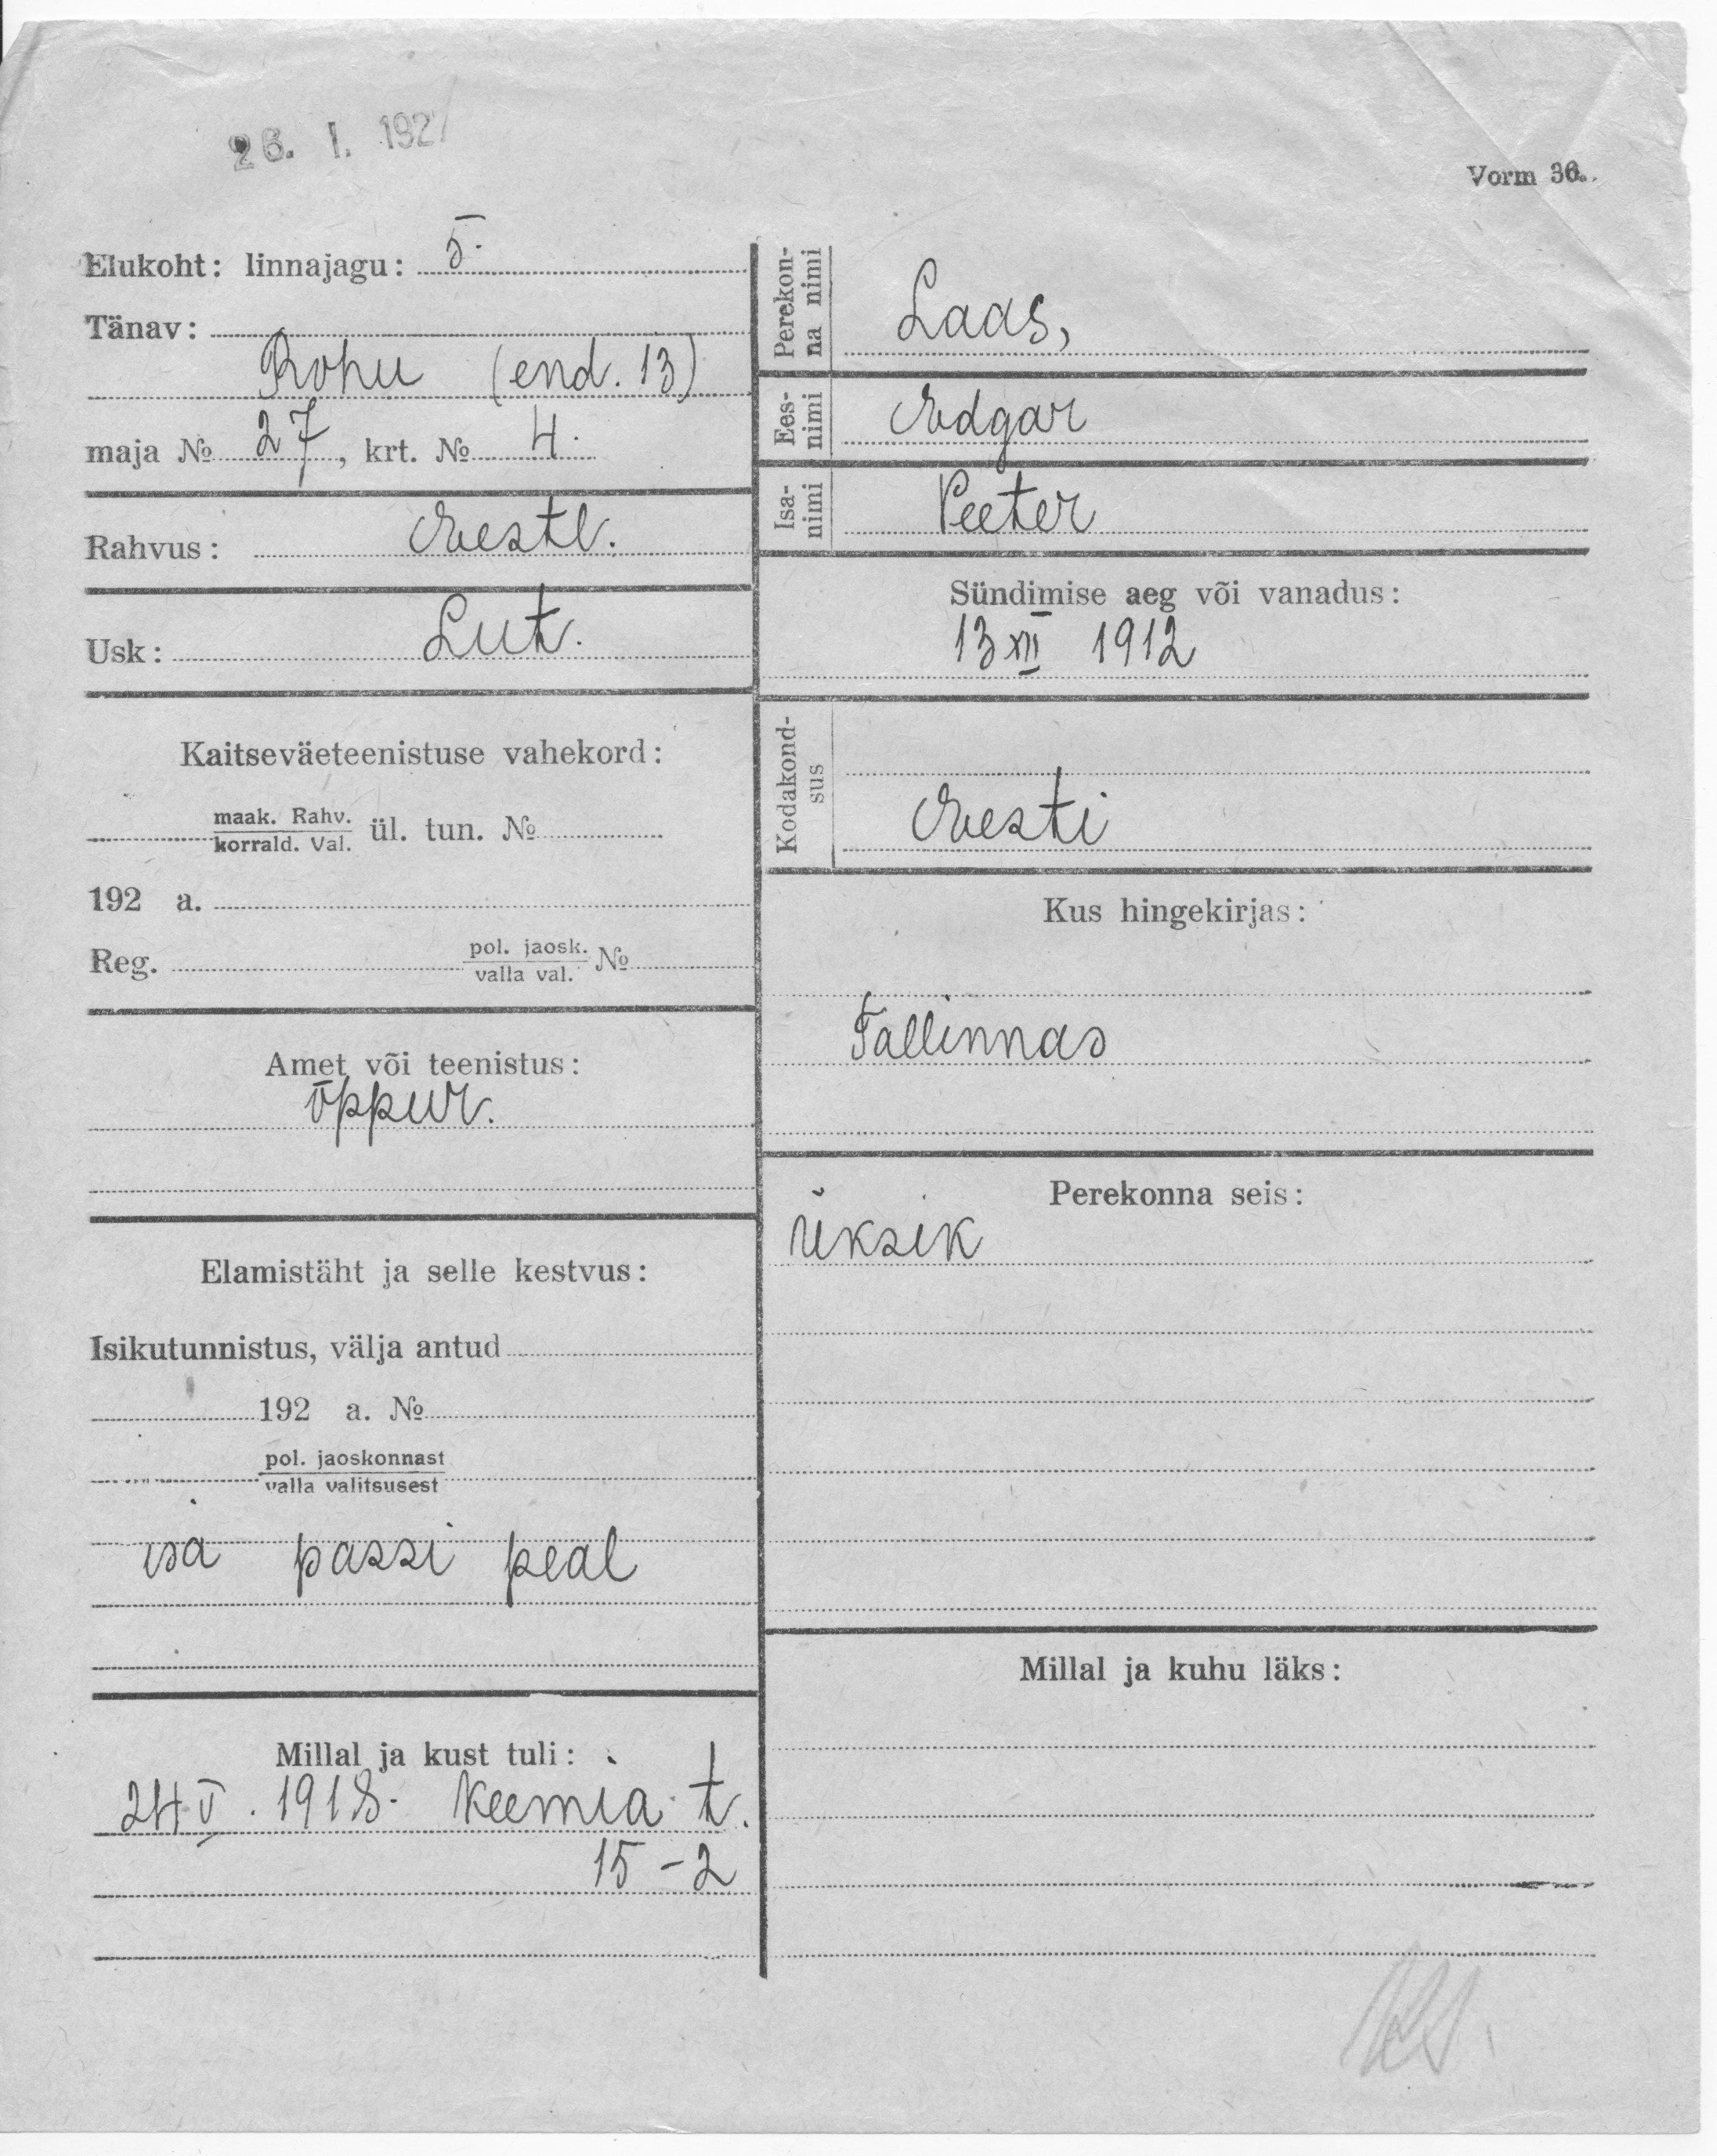 26. I. 1927
Vorm 36.
Elukoht: linnajagu: 5.
Tänav:
Rohu (end. 13)
maja № 27, krt. № 4.
Rahvus: Eestl.
Usk: Lut.
Kaitseväeteenistuse vahekord:
maak. Rahv.
korrald. Val. ül. tun. №
192 a.
Reg. pol. jaosk. №
valla val.
Amet või teenistus:
õppur.
Elamistäht ja selle kestvus:
Isikutunnistus, välja antud
192 a. №
pol. jaoskonnast
valla valitsusest
isa passi peal
Millal ja kust tuli:
24 V. 1918. Keemia t.
15-2
Perekon-
na nimi
Laas,
Ees-
nimi
Edgar
Isa-
nimi
Peeter
Sündimise aeg või vanadus:
13 XII 1912
Kodakond-
sus
Eesti
Kus hingekirjas:
Tallinnas
Perekonna seis:
Üksik
Millal ja kuhu läks: